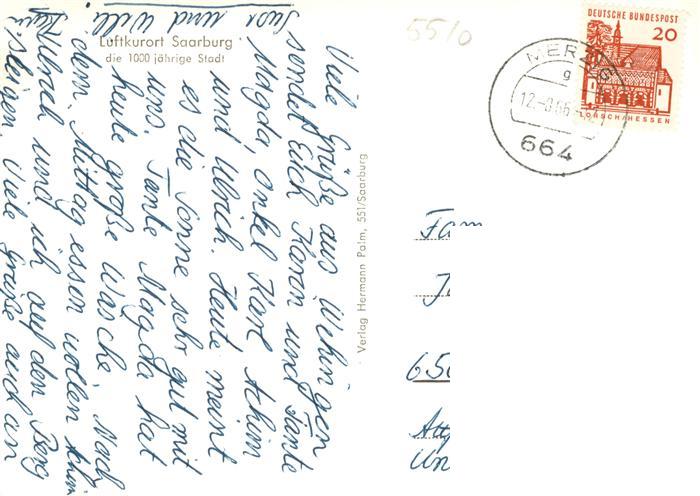 Luftkurort Saarburg
die 1000 jährige Stadt
Viele Grüße aus Wehingen
sendet Euch Karin und Tante
Magda Onkel Karl Achim
und Ulrich. Heute meint
es die Sonne sehr gut mit
uns. Tante Magda hat
heute große Wäsche. Nach
dem Mittag essen wollen Achim
Ulrich und ich auf den Berg
steigen. Viele Grüße auch an
Susi und Willi
Verlag Hermann Palm, 551/Saarburg
5510
DEUTSCHE BUNDESPOST
20
LORSCH/HESSEN
MERZIG
g
12.-8.66
664
Fam
65